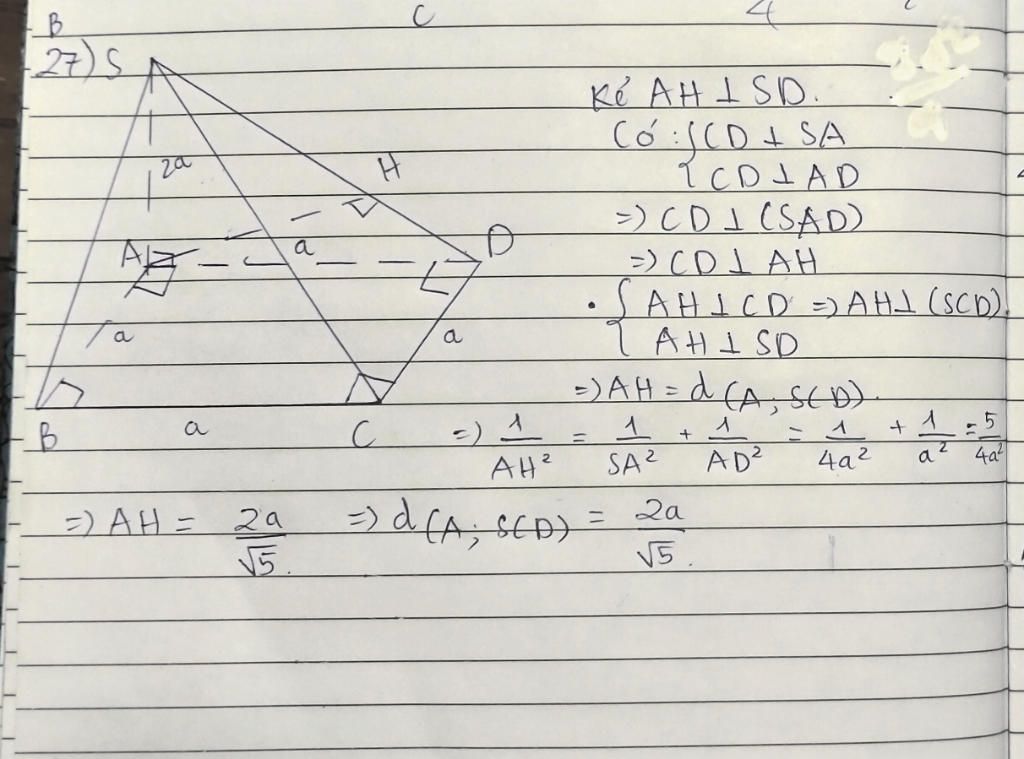 B
C
4
27) S
2a
H
A
a
D
a
a
B
a
C
Kẻ AH ⊥ SD.
Có : { CD ⊥ SA
{ CD ⊥ AD
=> CD ⊥ (SAD)
=> CD ⊥ AH
• { AH ⊥ CD => AH ⊥ (SCD)
{ AH ⊥ SD
=> AH = d(A; SCD).
=> 1/AH² = 1/SA² + 1/AD² = 1/4a² + 1/a² = 5/4a²
=> AH = 2a/√5. => d(A; SCD) = 2a/√5.